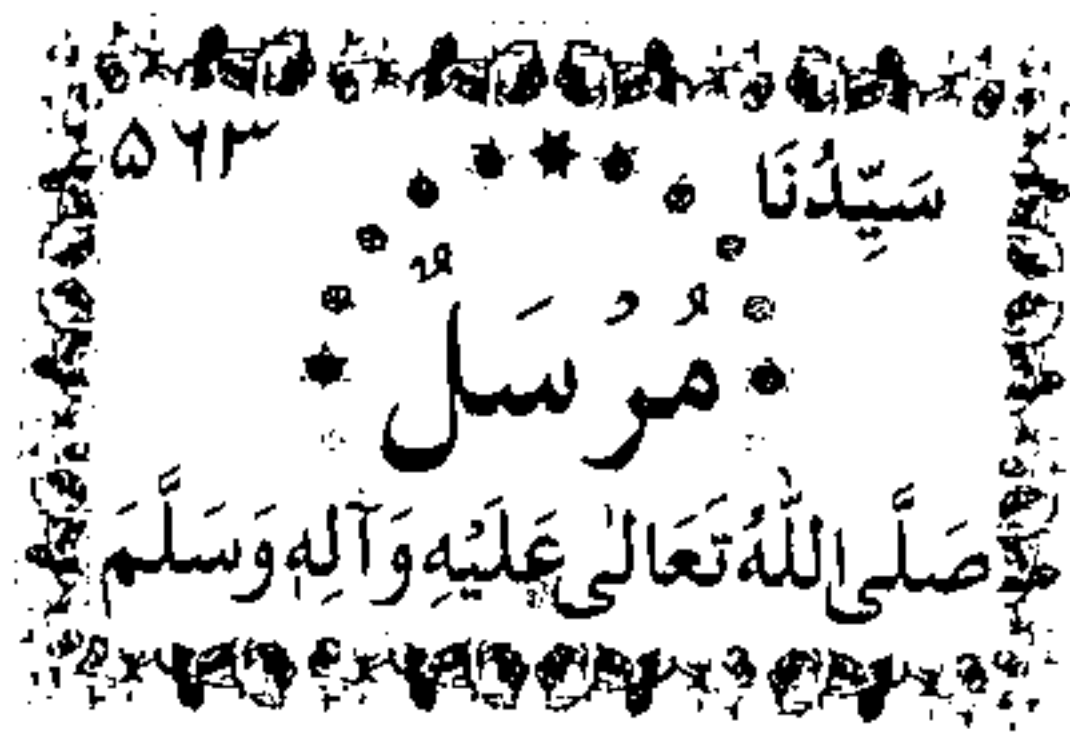 سَيِّدُنَا ۵۶۳
مُرْسَلٌ
صَلَّى اللّٰهُ تَعَالٰى عَلَيْهِ وَآلِهٖ وَسَلَّمَ